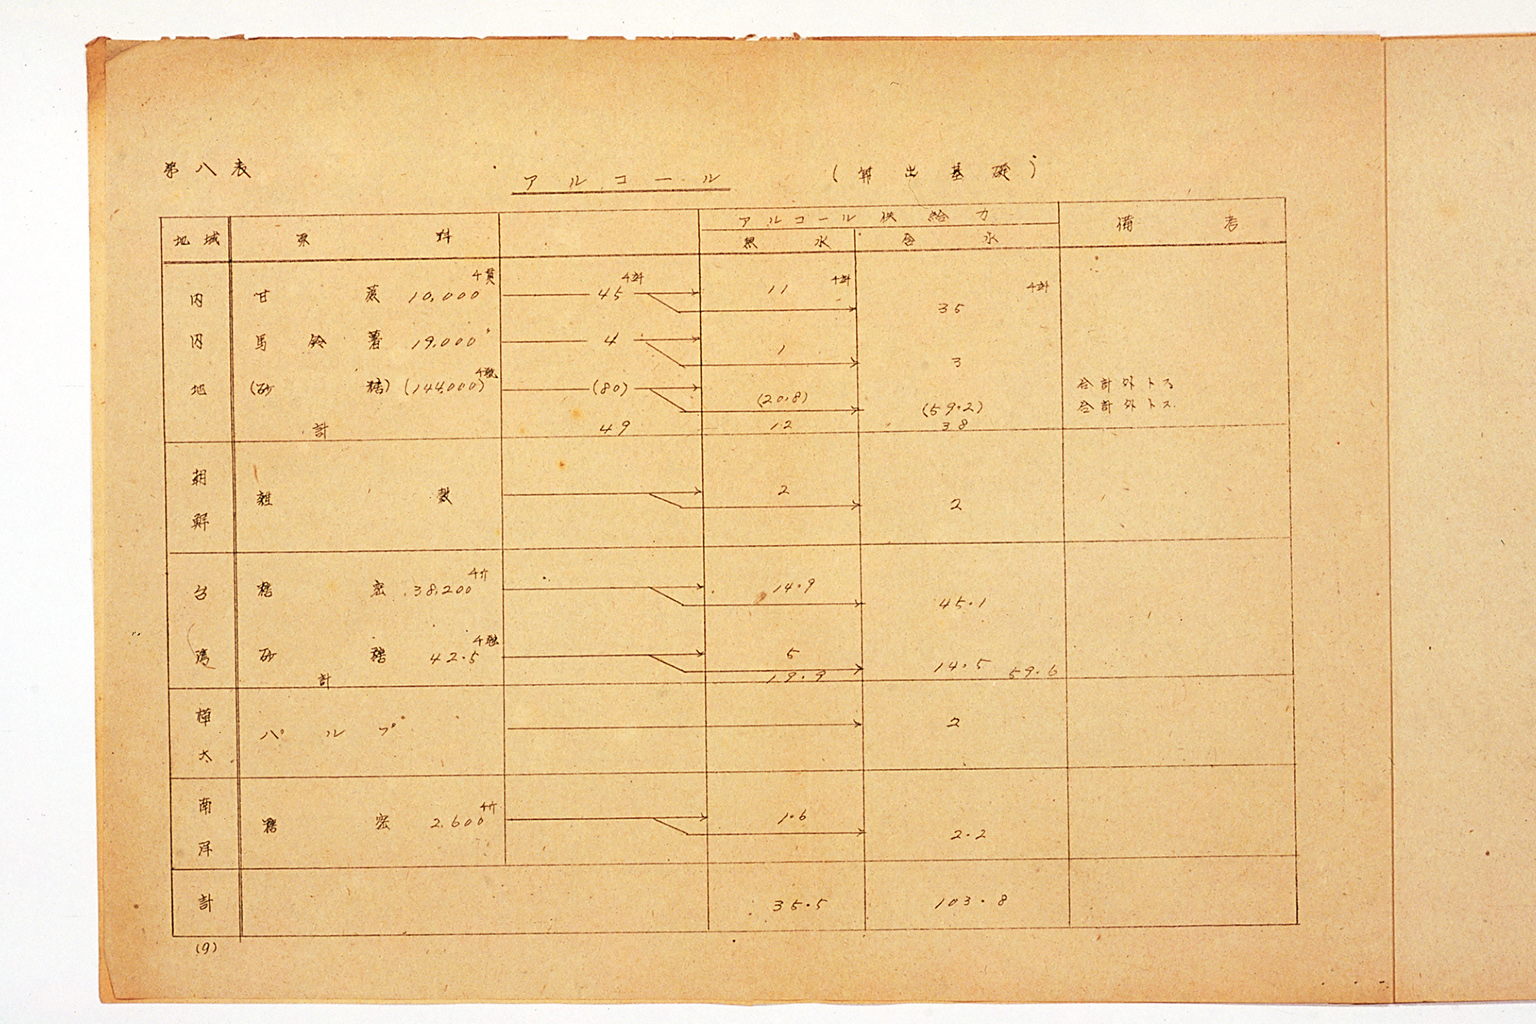 第八表
アルコール
(算出基礎)
地域 原料 アルコール供給力 備考
無水 含水
内 甘藷 10,000千貫 45千斗 11千斗 35千斗
内 馬鈴薯 19,000 4 1 3
地 (砂糖) (144,000) (80) (20.8) (59.2) 合計外トス
合計外トス
計 49 12 38
朝鮮 雑穀 2 2
台 糖密 38,200 14.9 45.1
湾 砂糖 42.5 5 14.5
計 19.9 59.6
樺太 パルプ 2
南洋 糖密 2,600 1.6 2.2
計 35.5 103.8
(9)